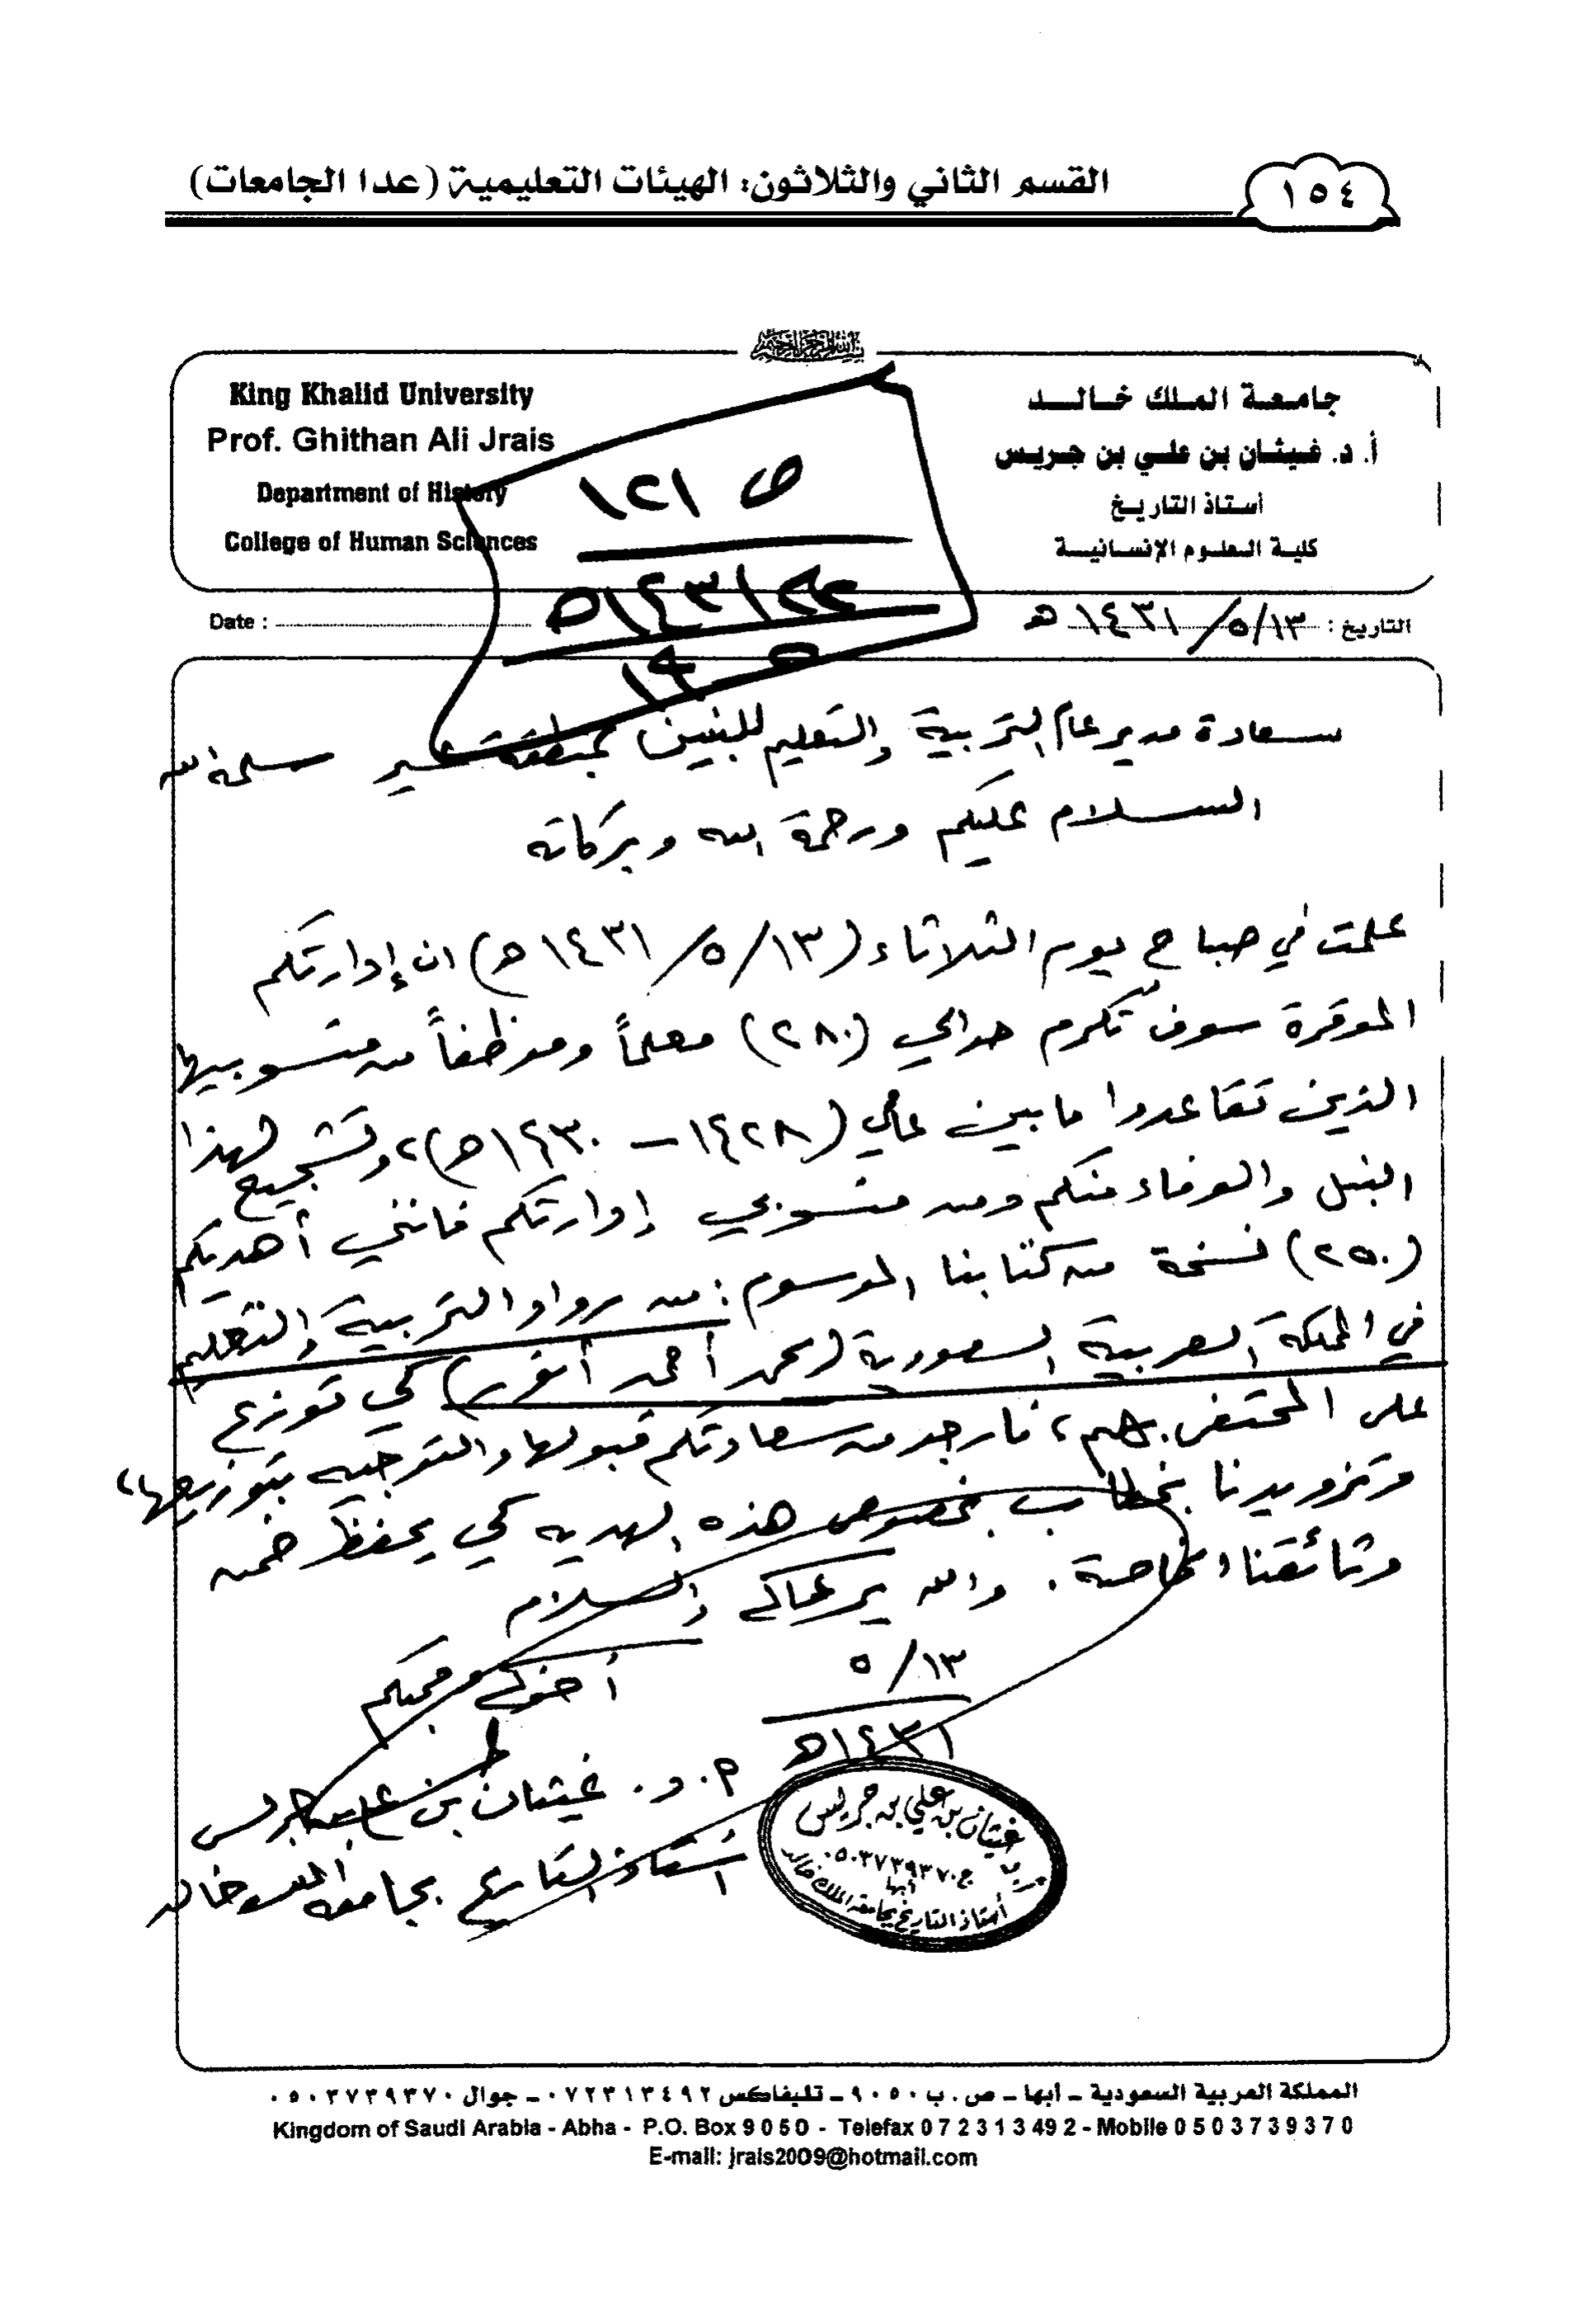 ١٥٤
القسم الثاني والثلاثون: الهيئات التعليمية (عدا الجامعات)
جامعة الملك خالد
أ. د. غيثان بن علي بن جريس
أستاذ التاريخ
كلية العلوم الإنسانية
King Khalid University
Prof. Ghithan Ali Jrais
Department of History
College of Human Sciences
ص ١٢١
التاريخ : ١٣/٥/١٤٣١ هـ
Date :
سعادة مدير عام التربية والتعليم للبنين بمنطقة عسير سلمه الله
السلام عليكم ورحمة الله وبركاته
علمت في صباح يوم الثلاثاء (١٣/٥/١٤٣١هـ) ان إدارتكم
الموقرة سوف تكرم حوالي (٢٨٠) معلماً وموظفاً من منسوبيها
الذين تقاعدوا ما بين عامي (١٤٢٨ – ١٤٣٠هـ)، وتشجيع لهذا
النبل والوفاء منكم ومن منسوبي إدارتكم فانني أهديكم
(٢٥٠) نسخة من كتابنا الموسوم: من رواد التربية والتعليم
في المملكة العربية السعودية (محمد أحمد أنور) كي توزع
على المحتفى بهم، فارجو من سعادتكم قبولها والتوجيه بتوزيعها،
وتزويدنا بخطاب بخصوص هذه الهدية كي يحفظ ضمن
وثائقنا الخاصة. والله يرعاكم والسلام
١٣/٥
١٤٣١هـ
أخوكم ومحبكم
أ.د. غيثان بن علي بن جريس
أستاذ التاريخ بجامعة الملك خالد
غيثان بن علي بن جريس
ج ٠٥٠٣٧٣٩٣٧٠
أبها
أستاذ التاريخ بجامعة الملك خالد
المملكة العربية السعودية – أبها – ص . ب ٩٠٥٠ – تليفاكس ٠٧٢٣١٣٤٩٢ – جوال ٠٥٠٣٧٣٩٣٧٠
Kingdom of Saudi Arabia - Abha - P.O. Box 9050 - Telefax 072313492 - Mobile 0503739370
E-mail: jrais2009@hotmail.com